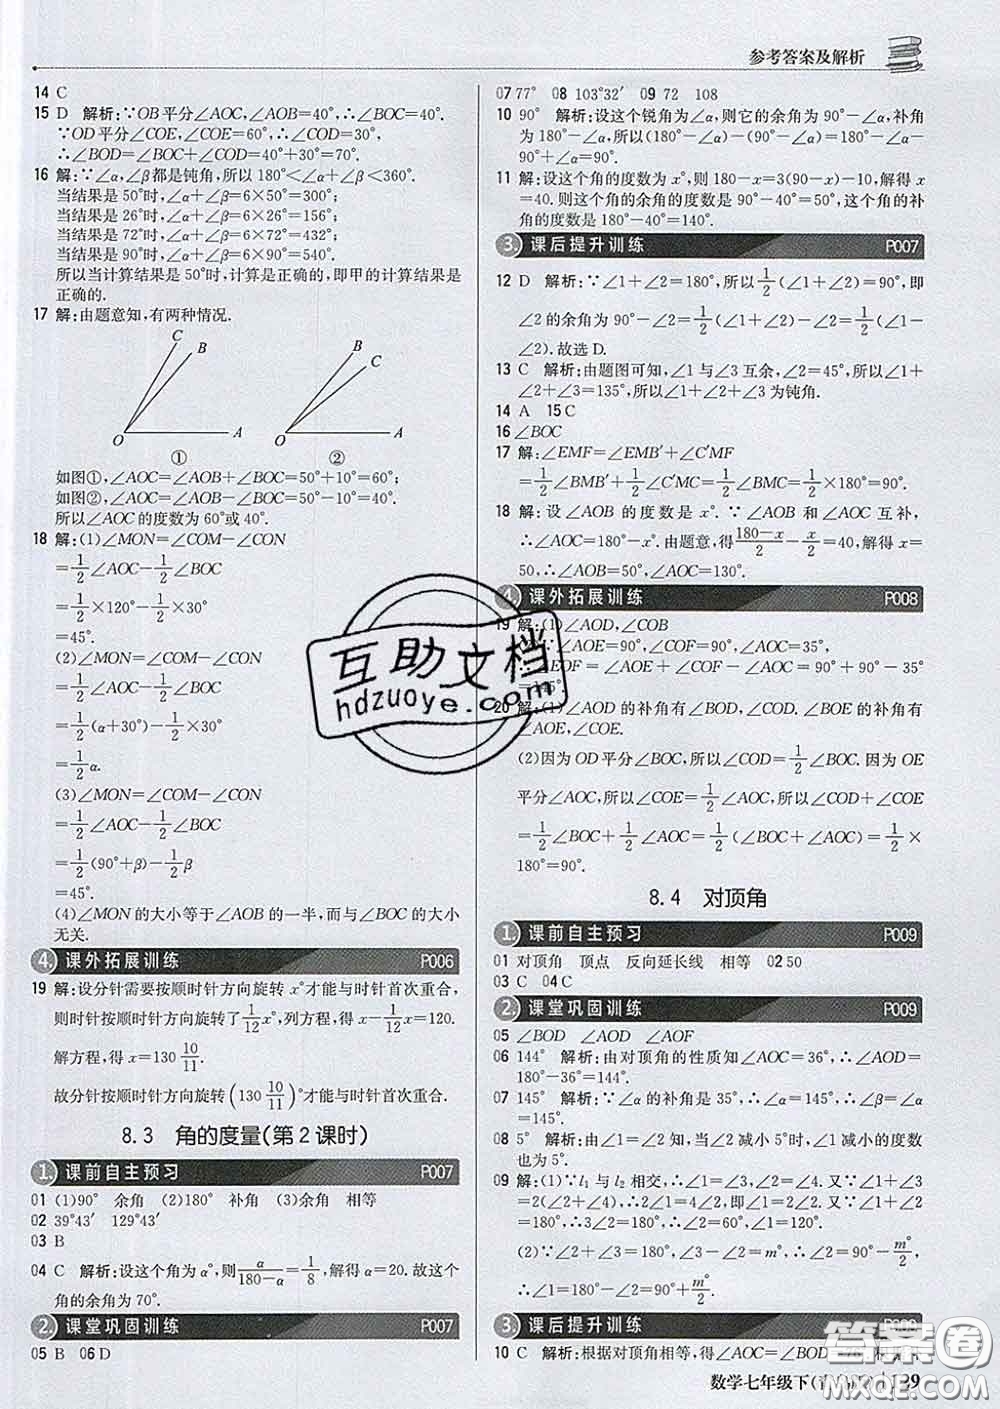 参考答案及解析
14 C
15 D 解析:∵OB平分∠AOC,∠AOB=40°,∴∠BOC=40°.
∵OD平分∠COE,∠COE=60°,∴∠COD=30°,
∴∠BOD=∠BOC+∠COD=40°+30°=70°.
16 解:∵∠α,∠β都是钝角,所以180°<∠α+∠β<360°.
当结果是50°时,∠α+∠β=6×50°=300°;
当结果是26°时,∠α+∠β=6×26°=156°;
当结果是72°时,∠α+∠β=6×72°=432°;
当结果是90°时,∠α+∠β=6×90°=540°.
所以当计算结果是50°时,计算是正确的,即甲的计算结果是
正确的.
17 解:由题意知,有两种情况.
C B O A ①
B C O A ②
如图①,∠AOC=∠AOB+∠BOC=50°+10°=60°;
如图②,∠AOC=∠AOB-∠BOC=50°-10°=40°.
所以∠AOC的度数为60°或40°.
18 解:(1)∠MON=∠COM-∠CON
=1/2∠AOC-1/2∠BOC
=1/2×120°-1/2×30°
=45°.
(2)∠MON=∠COM-∠CON
=1/2∠AOC-1/2∠BOC
=1/2(α+30°)-1/2×30°
=1/2α.
(3)∠MON=∠COM-∠CON
=1/2∠AOC-1/2∠BOC
=1/2(90°+β)-1/2β
=45°.
(4)∠MON的大小等于∠AOB的一半,而与∠BOC的大小
无关.
4. 课外拓展训练 P006
19 解:设分针需要按顺时针方向旋转x°才能与时针首次重合,
则时针按顺时针方向旋转了1/12x°,列方程,得x-1/12x=120.
解方程,得x=130 10/11.
故分针按顺时针方向旋转(130 10/11)°才能与时针首次重合.
8.3 角的度量(第2课时)
1. 课前自主预习 P007
01 (1)90° 余角 (2)180° 补角 (3)余角 相等
02 39°43′ 129°43′
03 B
04 C 解析:设这个角为α°,则α/(180-α)=1/8,解得α=20.故这个
角的余角为70°.
2. 课堂巩固训练 P007
05 B 06 D
07 77° 08 103°32′ 09 72 108
10 90° 解析:设这个锐角为∠α,则它的余角为90°-∠α,补角
为180°-∠α,所以(180°-∠α)-(90°-∠α)=180°-∠α-
90°+∠α=90°.
11 解:设这个角的度数为x°,则180-x=3(90-x)-10,解得x
=40.则这个角的余角的度数是90°-40°=50°,这个角的补
角的度数是180°-40°=140°.
3. 课后提升训练 P007
12 D 解析:∵∠1+∠2=180°,所以1/2(∠1+∠2)=90°,即
∠2的余角为90°-∠2=1/2(∠1+∠2)-∠2=1/2(∠1-
∠2).故选D.
13 C 解析:由题图可知,∠1与∠3互余,∠2=45°,所以∠1+
∠2+∠3=135°,所以∠1+∠2+∠3为钝角.
14 A 15 C
16 ∠BOC
17 解:∠EMF=∠EMB′+∠C′MF
=1/2∠BMB′+1/2∠CMC′=1/2∠BMC=1/2×180°=90°.
18 解:设∠AOB的度数是x°.∵∠AOB和∠AOC互补,
∴∠AOC=180°-x°.由题意,得(180-x)/2-x/2=40,解得x=
50,∴∠AOB=50°,∠AOC=130°.
4. 课外拓展训练 P008
19 解:(1)∠AOD,∠COB
(2)∵∠AOE=90°,∠COF=90°,∠AOC=35°,
∴∠EOF=∠AOE+∠COF-∠AOC=90°+90°-35°
=145°.
20 解:(1)∠AOD的补角有∠BOD,∠COD.∠BOE的补角有
∠AOE,∠COE.
(2)因为OD平分∠BOC,所以∠COD=1/2∠BOC.因为OE
平分∠AOC,所以∠COE=1/2∠AOC,所以∠COD+∠COE
=1/2∠BOC+1/2∠AOC=1/2(∠BOC+∠AOC)=1/2×
180°=90°.
8.4 对顶角
1. 课前自主预习 P009
01 对顶角 顶点 反向延长线 相等 02 50
03 C 04 C
2. 课堂巩固训练 P009
05 ∠BOD ∠AOD ∠AOF
06 144° 解析:由对顶角的性质知∠AOC=36°,∴∠AOD=
180°-36°=144°.
07 145° 解析:∵∠α的补角是35°,∴∠α=145°,∴∠β=∠α
=145°.
08 5° 解析:由∠1=∠2,∠2减小5°时,∠1减小的度数
也为5°.
09 解:(1)∵l1与l2相交,∴∠1=∠3,∠2=∠4.又∵∠1+∠3
=2(∠2+∠4),∴∠1=∠2+∠4,即∠1=2∠2.又∵∠1+∠2
=180°,∴3∠2=180°,∴∠2=60°,∴∠1=120°.
(2)∵∠2+∠3=180°,∠3-∠2=m°,∴∠2=90°-m°/2,
∴∠1=180°-∠2=90°+m°/2.
3. 课后提升训练
10 C 解析:根据对顶角相等,得∠BOC=∠AOD
数学七年级下
互助文档
hdzuoye.com
答案圈
MXQE.COM